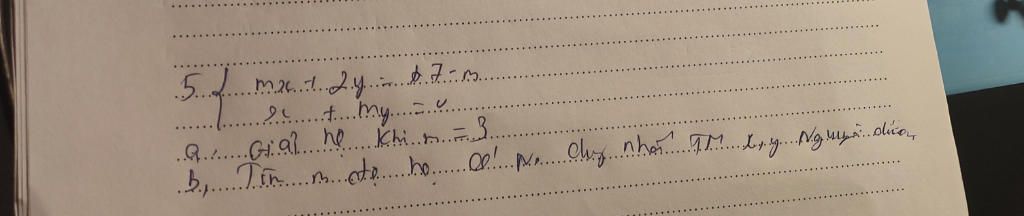 5. { mx + 2y = 7 - m
x + my = 4
a, Giải hệ khi m = 3
b, Tìm m để hệ có No duy nhất TM x, y Nguyên dương